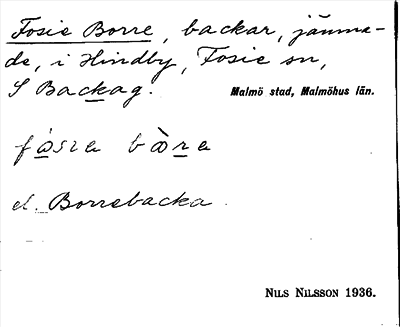 Fosie Borre, backar, jämna-
de, i Hindby, Fosie sn,
S Backag.
Malmö stad, Malmöhus län.
fosıe bòre
el. Borrebacka.
NILS NILSSON 1936.